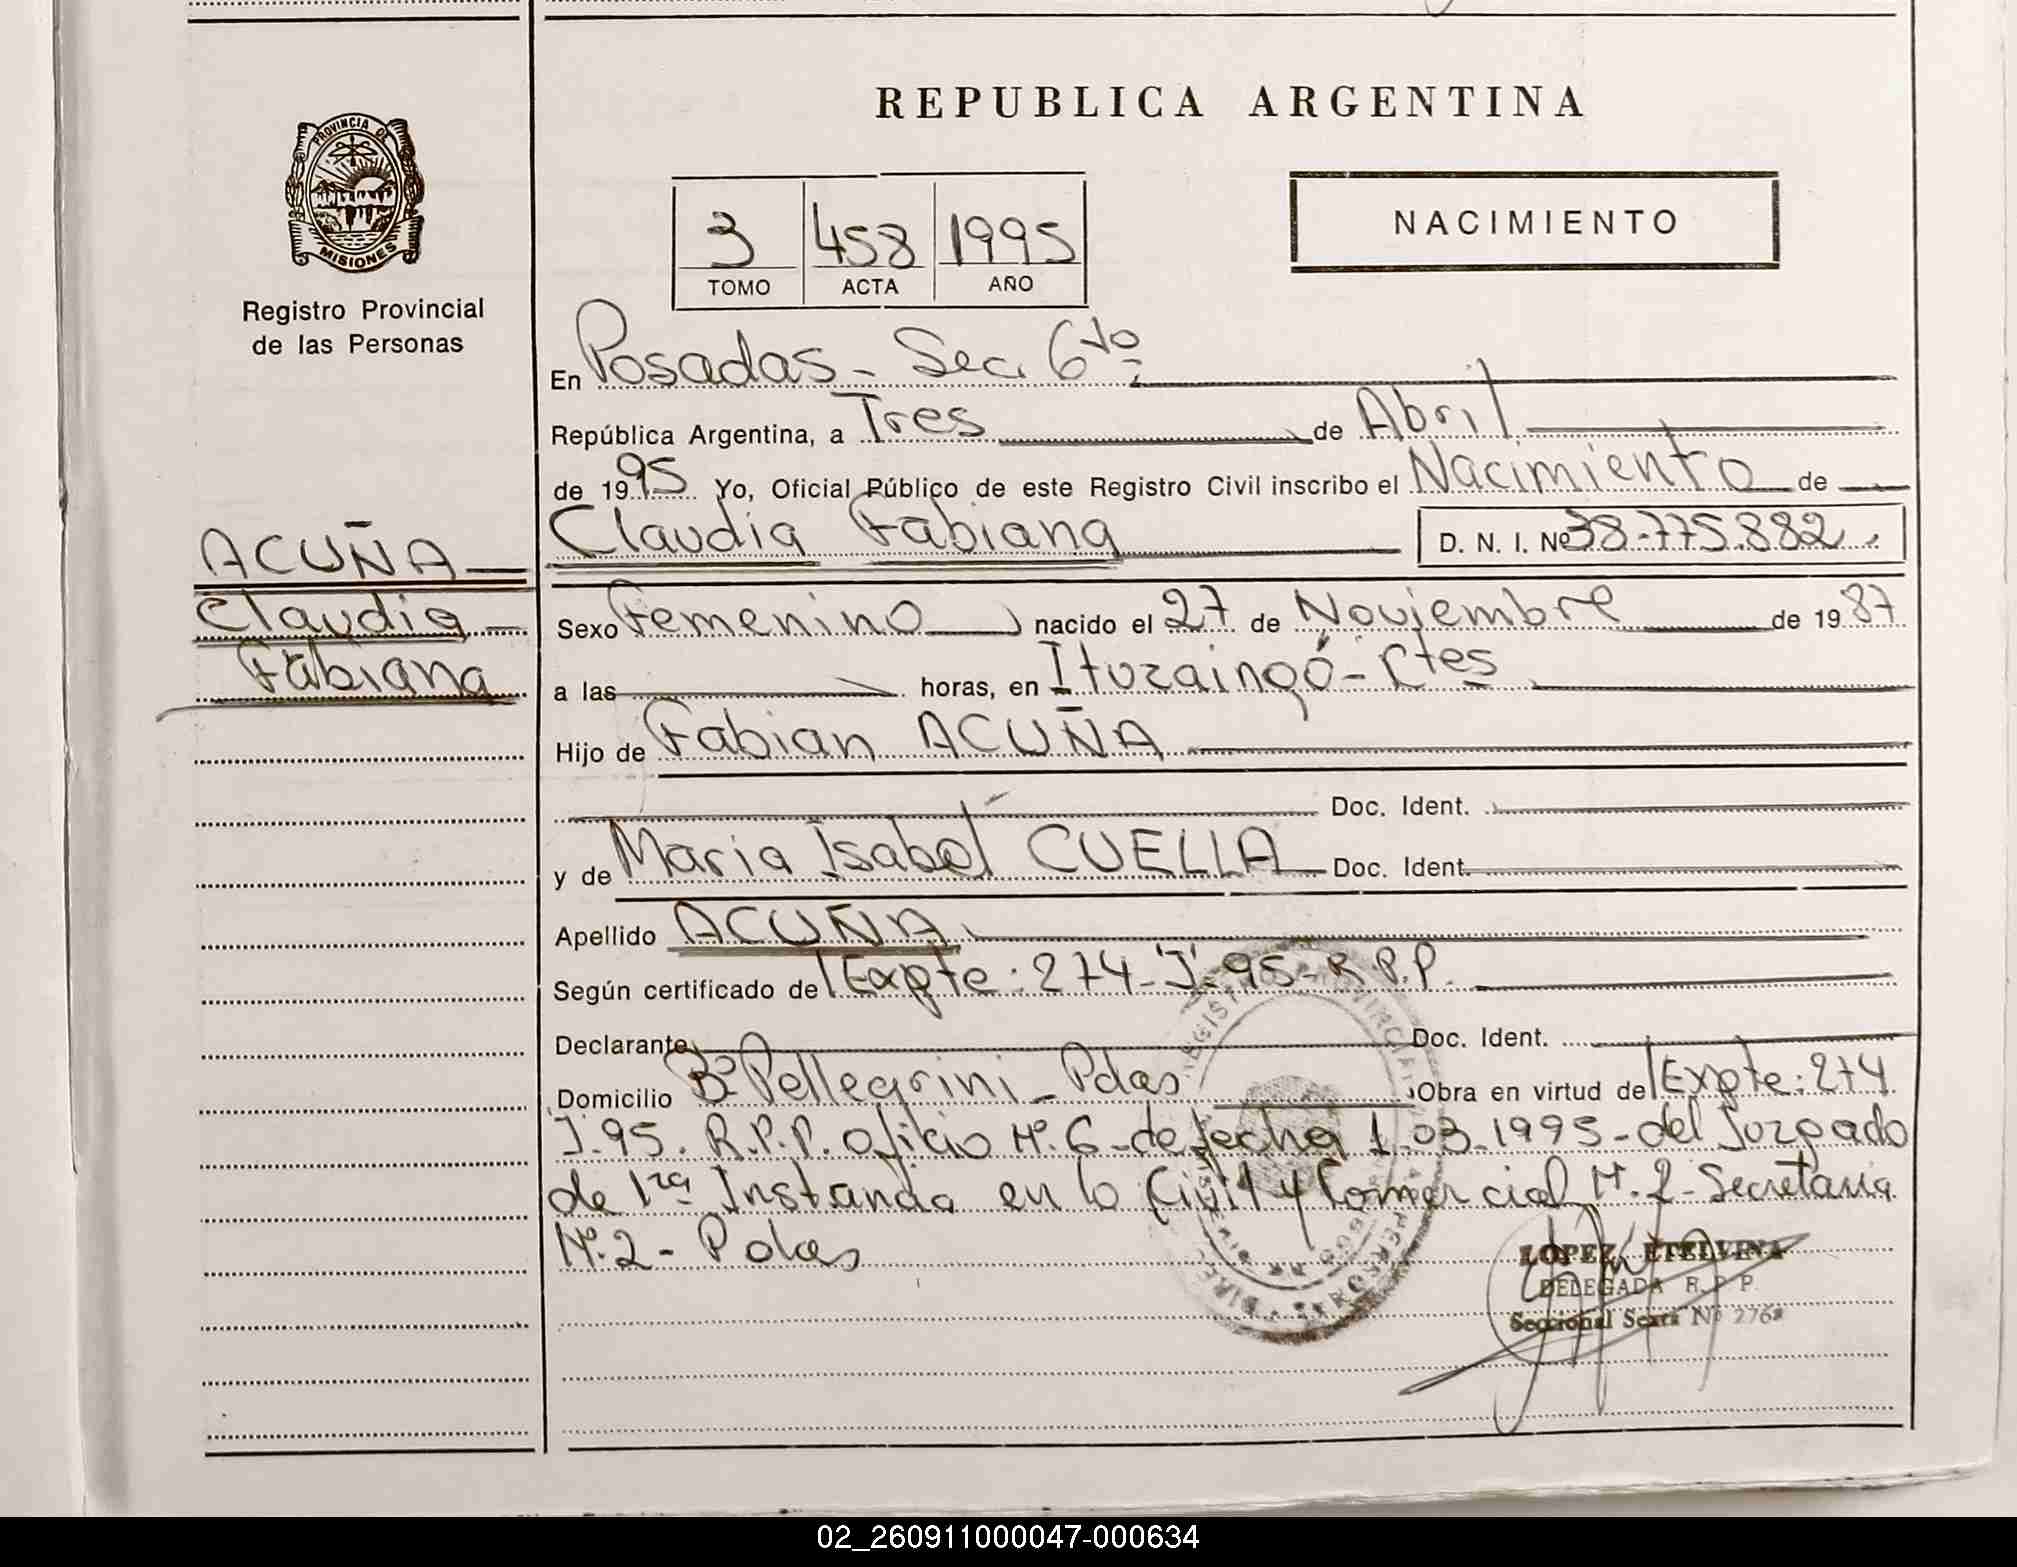 REPUBLICA ARGENTINA
PROVINCIA DE
MISIONES
Registro Provincial
de las Personas
3 458 1995
TOMO ACTA AÑO
NACIMIENTO
En Posadas - Sec. 6to
República Argentina, a Tres de Abril
de 1995 Yo, Oficial Público de este Registro Civil inscribo el Nacimiento de
ACUÑA
Claudia
Fabiana
Claudia Fabiana D. N. I. Nº 38.775.882
Sexo Femenino nacido el 27 de Noviembre de 1987
a las horas, en Ituzaingó - Ctes
Hijo de Fabian ACUÑA
Doc. Ident.
y de Maria Isabel CUELLA Doc. Ident.
Apellido ACUÑA
Según certificado de Expte: 274-"J"-95-R.P.P.
Declarante Doc. Ident.
Domicilio Bº Pellegrini - Pdas Obra en virtud de Expte: 274
"J" 95. R.P.P. oficio Nº. 6 - de fecha 1.03.1995 - del Juzgado
de 1ra Instancia en lo Civil y Comercial N. 2 - Secretaria
Nº. 2 - Pdas
LOPEZ, ETELVINA
DELEGADA R. P. P.
Seccional Sexta Nº 2762
02_260911000047-000634